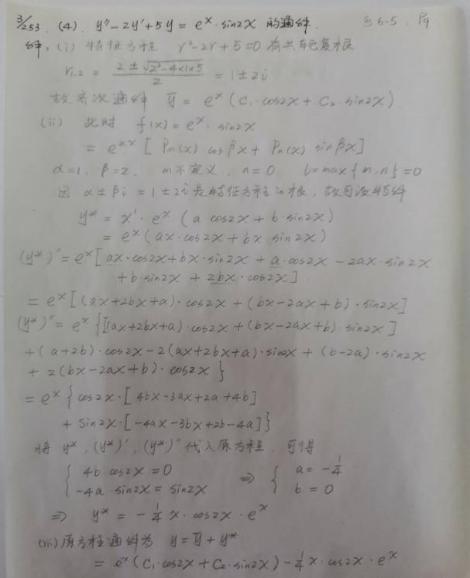 3/253. (4). y''-2y'+5y=eˣ·sin2x 的通解. §6-5, P9
解: (i) 特征方程 r²-2r+5=0 有共轭复根
r₁,₂ = (2±√(2²-4×1×5))/2 = 1±2i
故齐次通解 ȳ = eˣ(C₁·cos2x+C₂·sin2x)
(ii) 此时 f(x)=eˣ·sin2x
= e^(αx)[Pₘ(x) cosβx + Pₙ(x) sinβx]
α=1, β=2, m不定义, n=0 l=max{m,n}=0
因 α±βi=1±2i是特征方程的根, 故
y* = x¹·eˣ(a cos2x+b·sin2x)
= eˣ(ax·cos2x+bx·sin2x)
(y*)' = eˣ[ax·cos2x+bx·sin2x+a·cos2x-2ax·sin2x
+b·sin2x+2bx·cos2x]
= eˣ[(ax+2bx+a)·cos2x+(bx-2ax+b)·sin2x]
(y*)'' = eˣ{[(ax+2bx+a)·cos2x+(bx-2ax+b)·sin2x]
+(a+2b)·cos2x-2(ax+2bx+a)·sin2x+(b-2a)·sin2x
+2(bx-2ax+b)·cos2x}
= eˣ{cos2x·[4bx-3ax+2a+4b]
+sin2x·[-4ax-3bx+2b-4a]}
将 y*, (y*)', (y*)'' 代入原方程, 可得
{ 4b·cos2x=0 ⇒ { a=-1/4
-4a·sin2x=sin2x b=0
⇒ y* = -1/4 x·cos2x·eˣ
(iii) 原方程通解为 y=ȳ+y*
= eˣ(C₁·cos2x+C₂·sin2x)-1/4 x·cos2x·eˣ